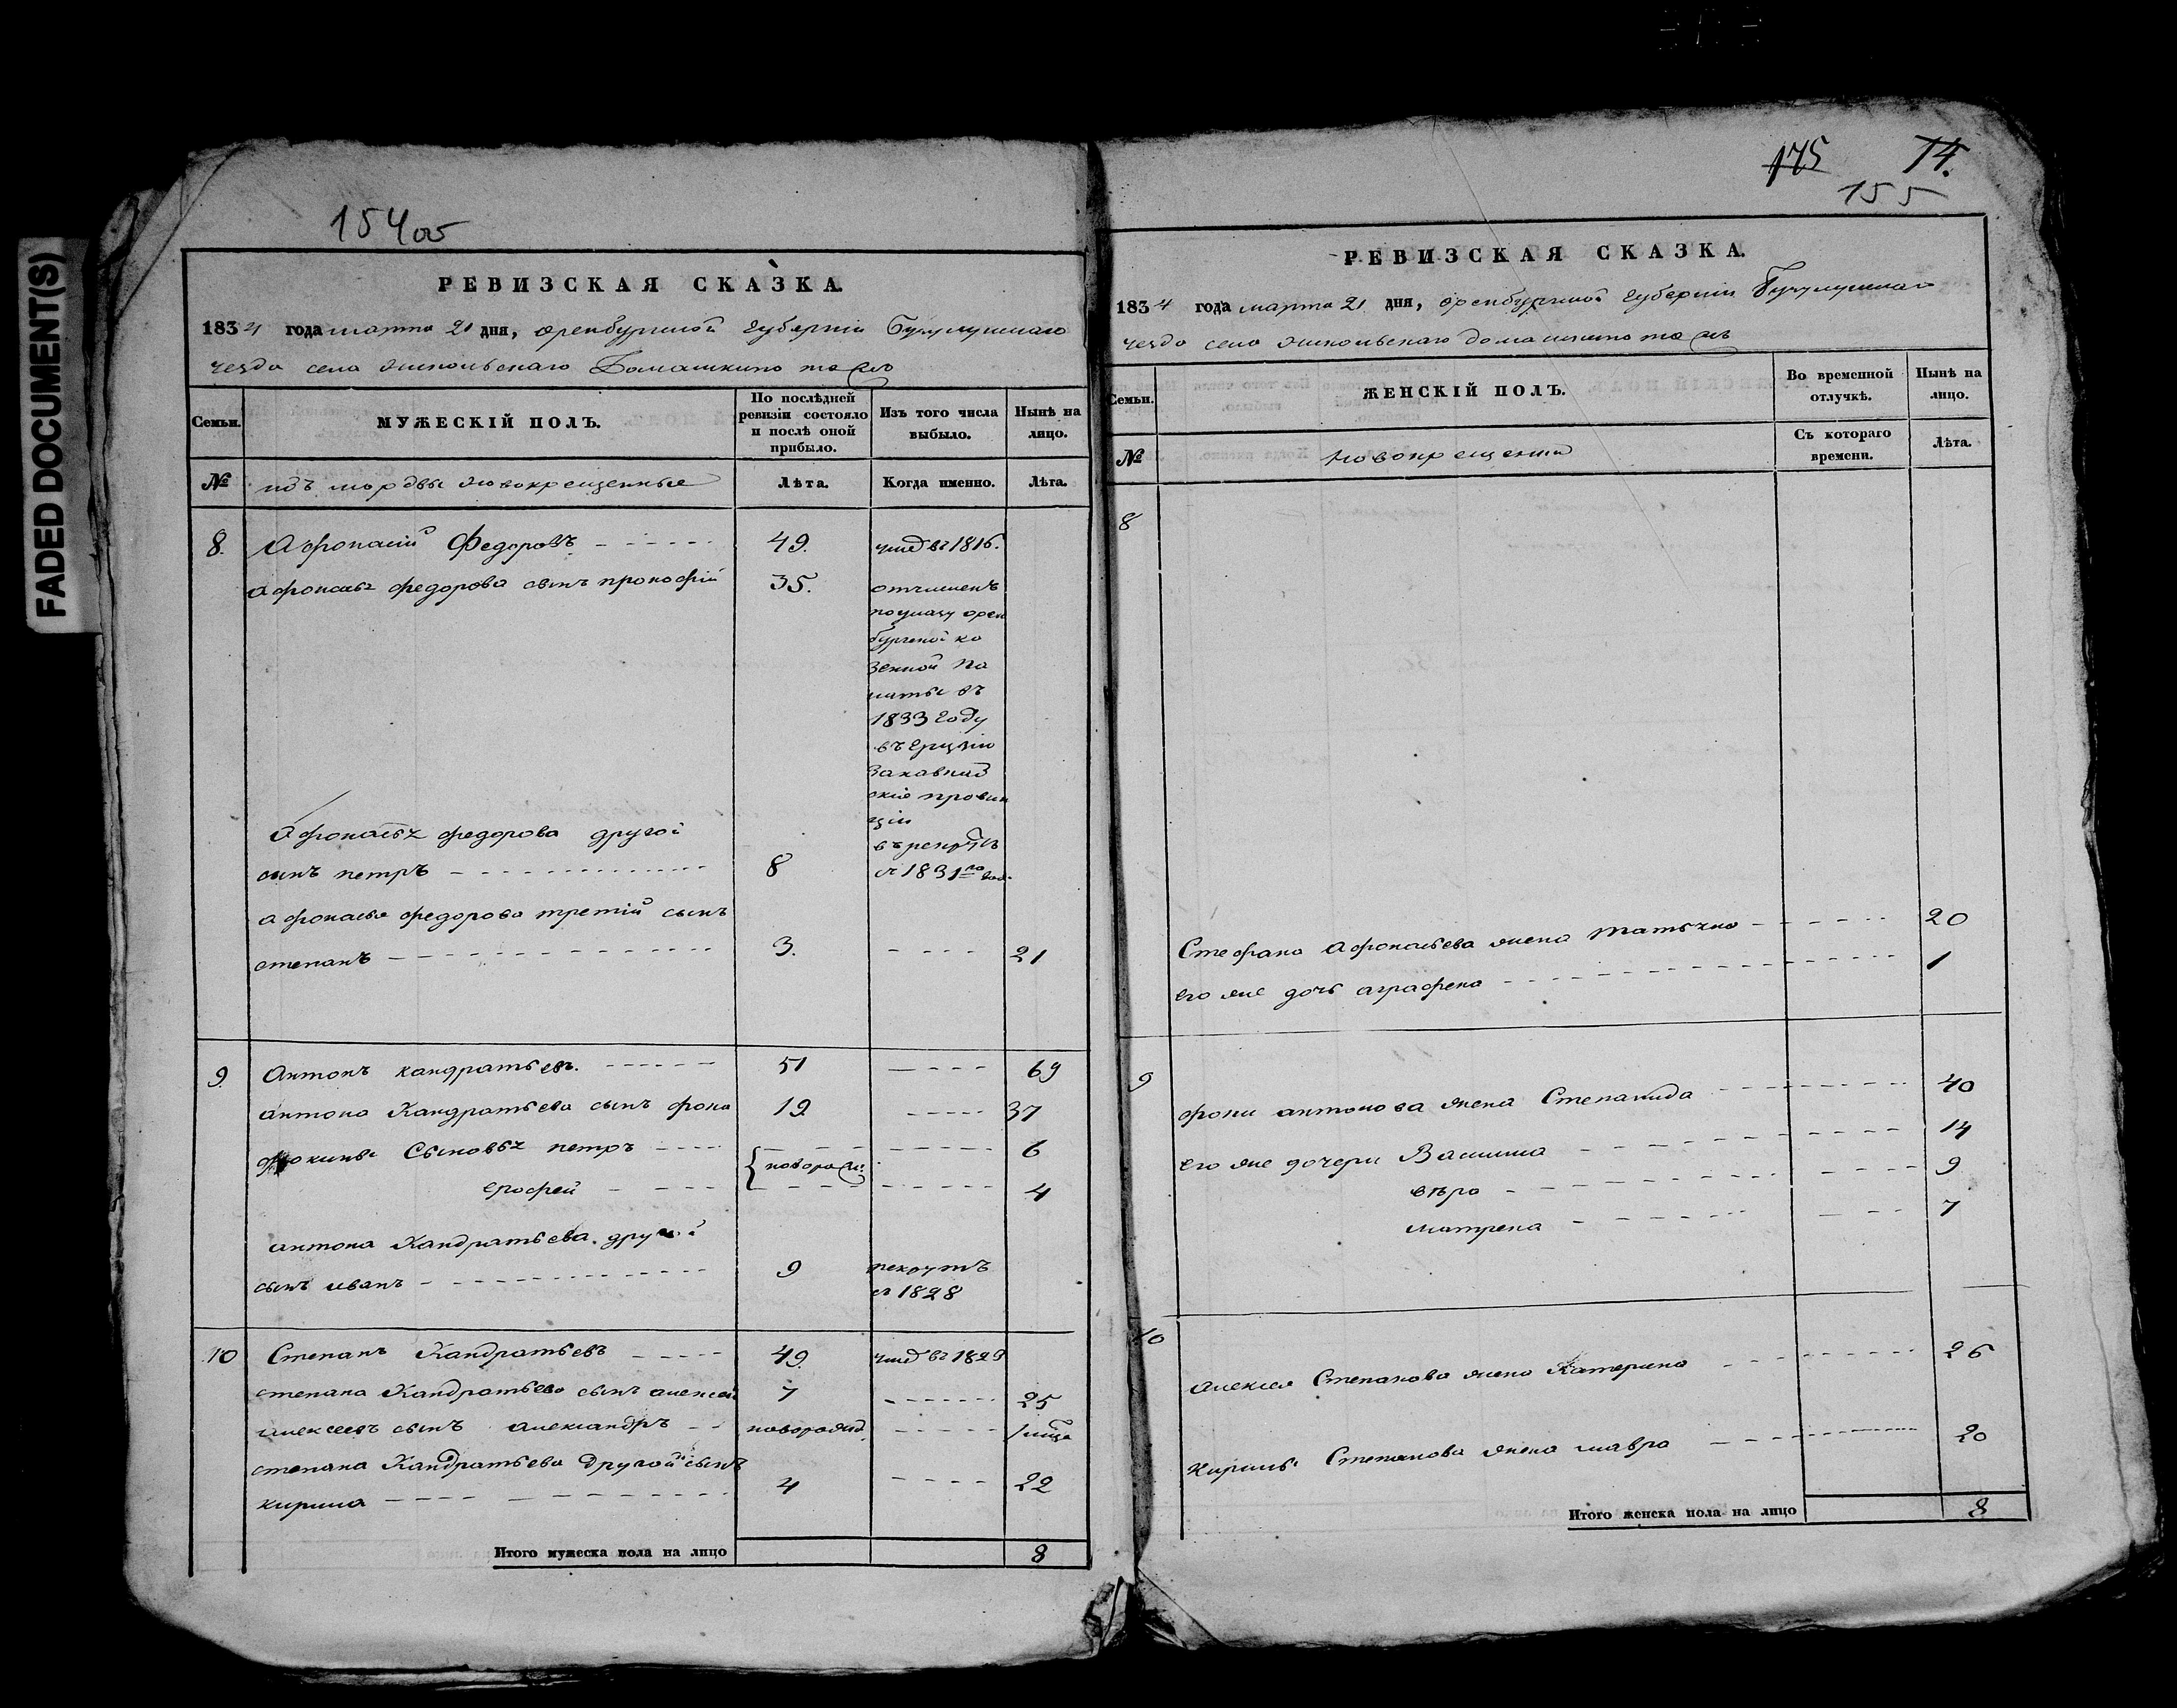 FADED DOCUMENT(S)
154об
РЕВИЗСКАЯ СКАЗКА.
1834 года марта 21 дня, оренбургской губернии Бугульминскаго
уезда села Домашкино тож
Семьи.
МУЖЕСКІЙ ПОЛЪ.
По послѣдней ревизіи состояло и послѣ оной прибыло.
Изъ того числа выбыло.
Нынѣ на лицо.
№
изъ мордвы новокрещенные
Лѣта.
Когда именно.
Лѣта.
8. Афонасий Федоровъ 49. умер въ 1816.
Афонасья федорова сынъ прокофий 35. отчислен
по указу орен
бургской ка
зенной па
латы въ
1833 году
въ грузию
закавказ
ские провин
ции
Афонасья федорова другой в рекруты
сынъ петръ 8 с 1831го года
афонасья федорова третий сынъ
степанъ 3. 21
9. Антонъ кандратьевъ. 51 69
антона Кандратьева сынъ фока 19 37
фокины Сыновья петръ новорож. 6
ерофей 4
антона Кандратьева другой
сынъ иванъ 9 рекрутъ
с 1828
10 Степанъ Кандратьевъ 49. умер въ 1829
степана Кандратьева сынъ алексей 7 25
алексеевъ сынъ александръ новорожд.
степана Кандратьева другой сынъ
кирила 4 22
Итого мужеска пола на лицо 8
175 74.
155
РЕВИЗСКАЯ СКАЗКА.
1834 года марта 21 дня, оренбургской губернии Бугульминскаго
уезда села домашкино тож
Семьи.
ЖЕНСКІЙ ПОЛЪ.
Во временной отлучкѣ.
Нынѣ на лицо.
№
новокрещенны
Съ котораго времени.
Лѣта.
8
Стефана Афонасьева жена татьяна 20
его же дочь аграфена 1
9
фоки антонова жена Степанида 40
его же дочери Василиса 14
вѣра 9
матрена 7
10
алексея Степанова жена Катерина 26
кирилы Степанова жена мавра 20
Итого женска пола на лицо 8